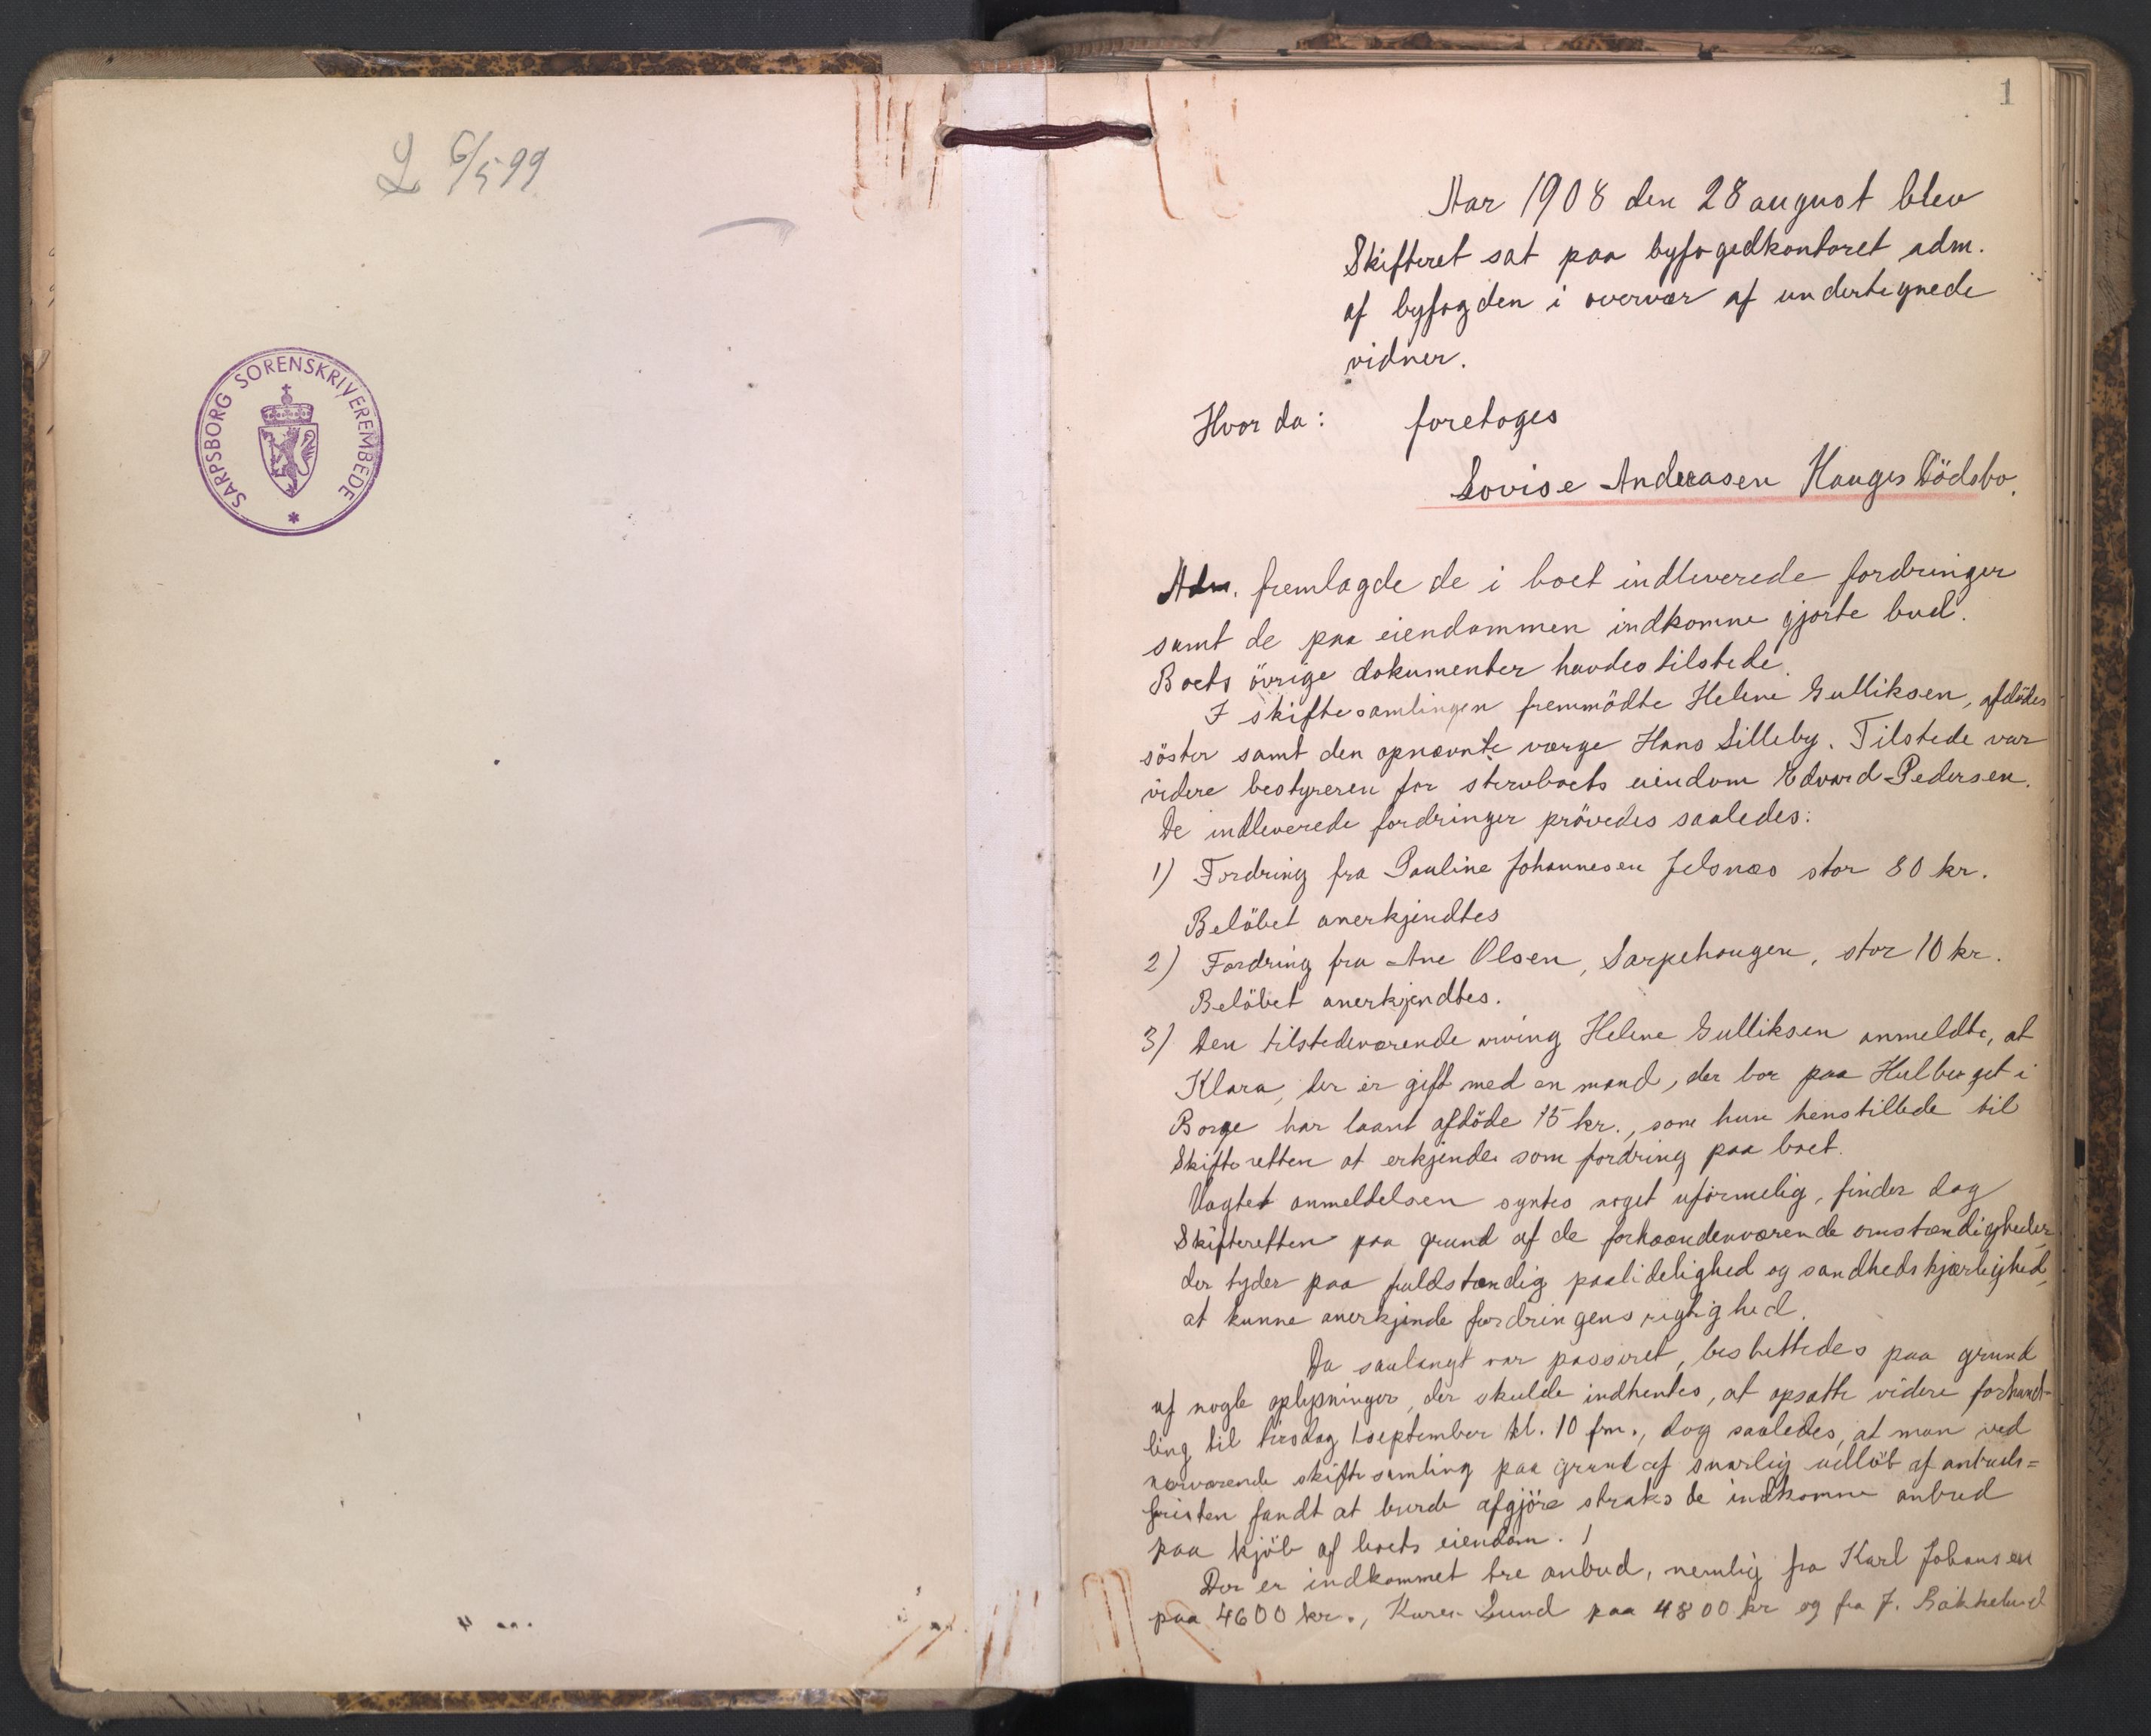 L 6/5 99
SARPSBORG SORENSKRIVEREMBEDE
1
Aar 1908 den 28 august blev
Skifteret sat paa byfogedkontoret adm.
af byfogden i overvær af undertegnede
vidner.
Hvor da: foretoges
Lovise Andreasen Hauges Dödsbo.
Adm. fremlagde de i boet indleverede fordringer
samt de paa eiendommen indkomne gjorte bud.
Boets övrige dokumenter havdes tilstede.
I skiftesamlingen fremmödte Helene Gulliksen, afdödes
söster samt den opnævnte værge Hans Lilleby. Tilstede var
videre bestyreren for stervboets eiendom Edvard Pedersen.
De indleverede fordringer prövedes saaledes:
1) Fordring fra Pauline Johannesen Jelsnæs stor 80 kr.
Belöbet anerkjendtes
2) Fordring fra Ane Olsen, Sarpehaugen, stor 10 kr.
Belöbet anerkjendtes.
3) Den tilstedeværende arving Helene Gulliksen anmeldte, at
Klara, der er gift med en mand, der bor paa Hulberget i
Borge har laant afdöde 15 kr., som hun henstillede til
Skifteretten at erkjende som fordring paa boet.
Uagtet anmeldelsen syntes noget uformelig, finder dog
Skifteretten paa grund af de forhaandenværende omstændigheder,
der tyder paa fuldstændig paalidelighed og sandhedskjærlighed,
at kunne anerkjende fordringens rigtighed.
Da saalangt var passeret, besluttedes paa grund
af nogle oplysninger, der skulde indhentes, at opsætte videre forhand-
ling til tirsdag 1 september kl. 10 fm., dog saaledes, at man ved
nærværende skiftesamling paa grund af snarlig udlöb af anbuds=
fristen fandt at burde afgjöre straks de indkomne anbud
paa kjöb af boets eiendom.
Der er indkommet tre anbud, nemlig fra Karl Johansen
paa 4600 kr., Karen Lund paa 4800 kr og fra J. Bakkelund